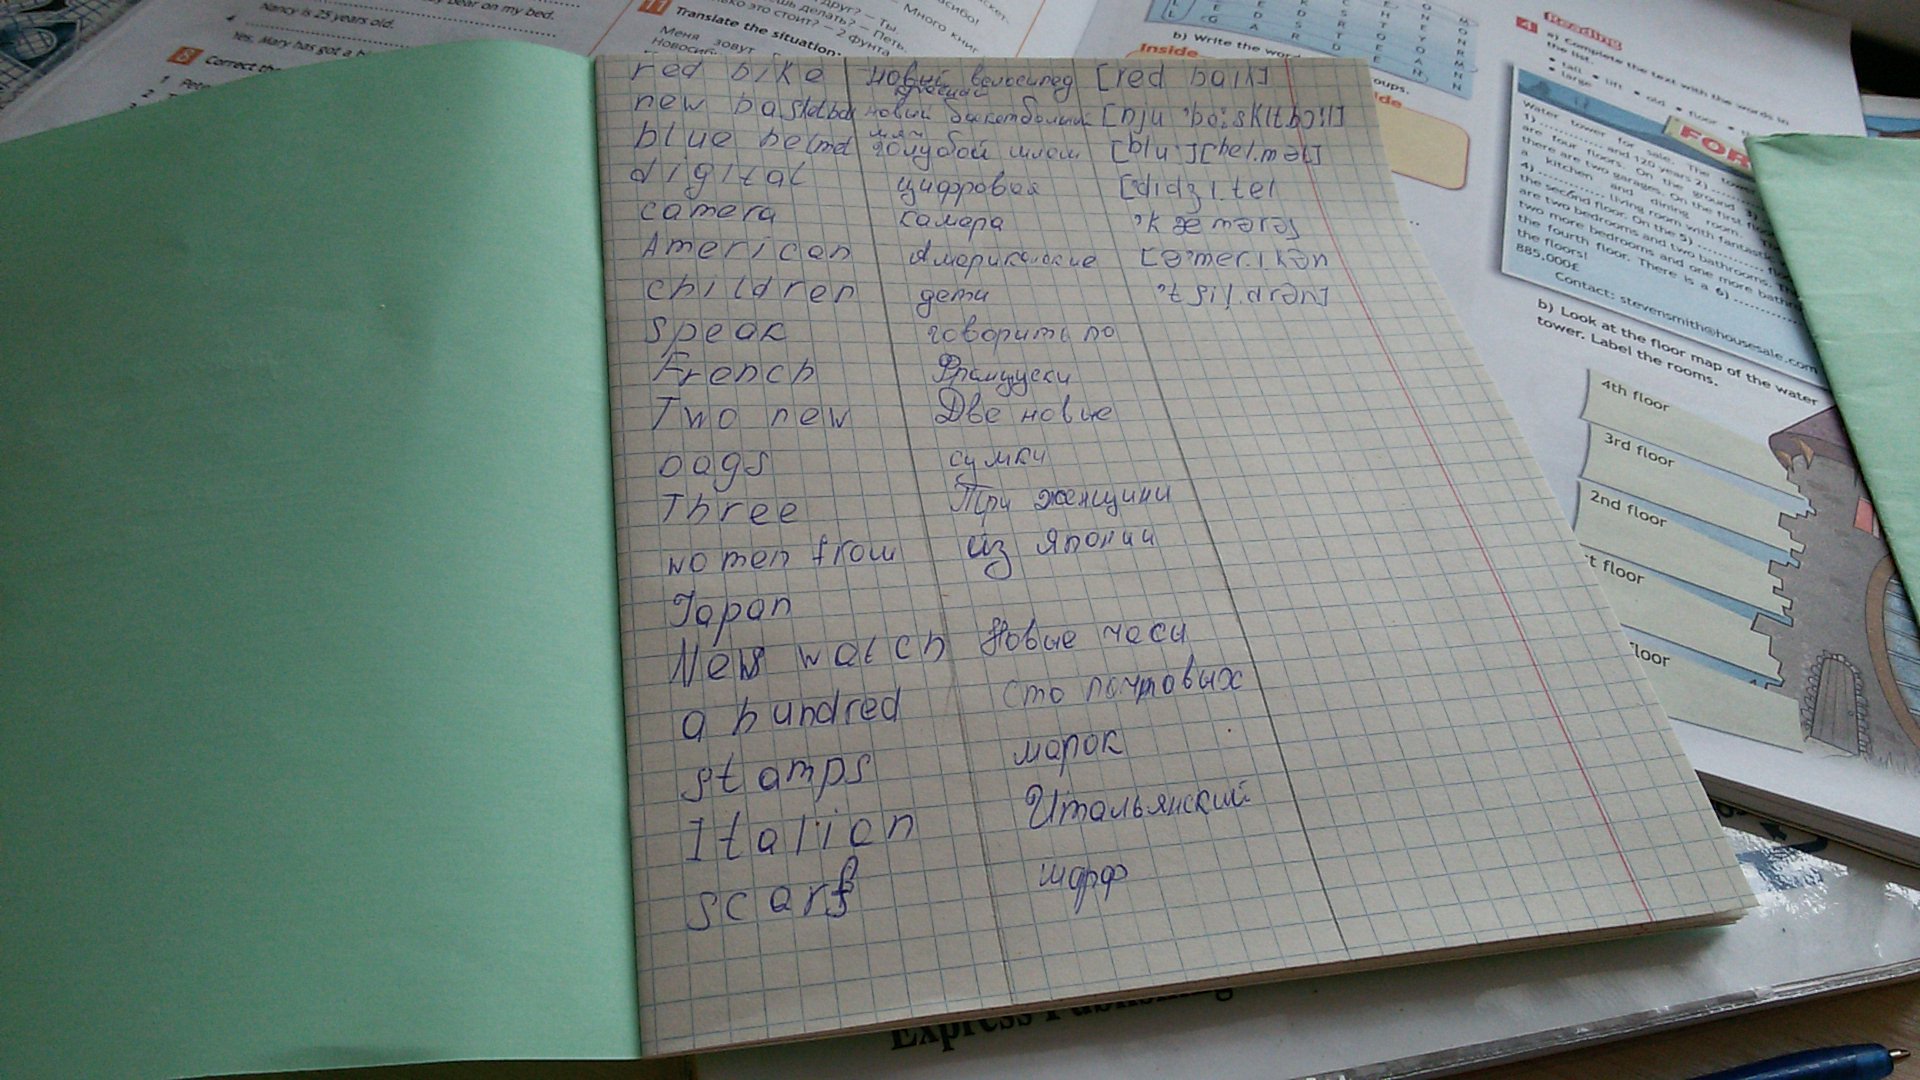 bear on my bed.
Nancy is 25 years old.
4
Yes, Mary has got a
8 Correct the
1
2
11 Translate the situation:
Меня зовут
друг? — Ты
делать? — Петь.
это стоит? — 2 фунта
Много книг
b) Write the
Inside
oups.
4 Reading
a) Complete the text with the words in
the list.
• tall • lift • old • floor
• large
FOR
Water tower for sale. The
1) and 120 years 2)
are four floors. On the ground 3)
there are two garages. On the first
a kitchen and dining room.
4) living room with fantastic
the second floor. On the 5)
are two bedrooms and two bathrooms.
two more bedrooms and one more bath
the fourth floor. There is a 6)
the floors!
885,000£
Contact: stevensmith@housesale.com
b) Look at the floor map of the water
tower. Label the rooms.
4th floor
3rd floor
2nd floor
t floor
floor
red bike новый велосипед [red baik]
красный
new basketball новый баскетбольный
мяч
blue helmet голубой шлем [blu:][hel.mət]
digital цифровая [didʒi.tel
camera камера 'k æ mərəs]
American Американские [ə'mer.i.kən
children дети
speak говорить по
French Французски
Two new Две новые
bags сумки
Three Три женщини
women from из Японии
Japan
New watch Новые часи
a hundred сто почтовых
stamps марок
Italian Итальянский
scarf шарф
Express Publishing